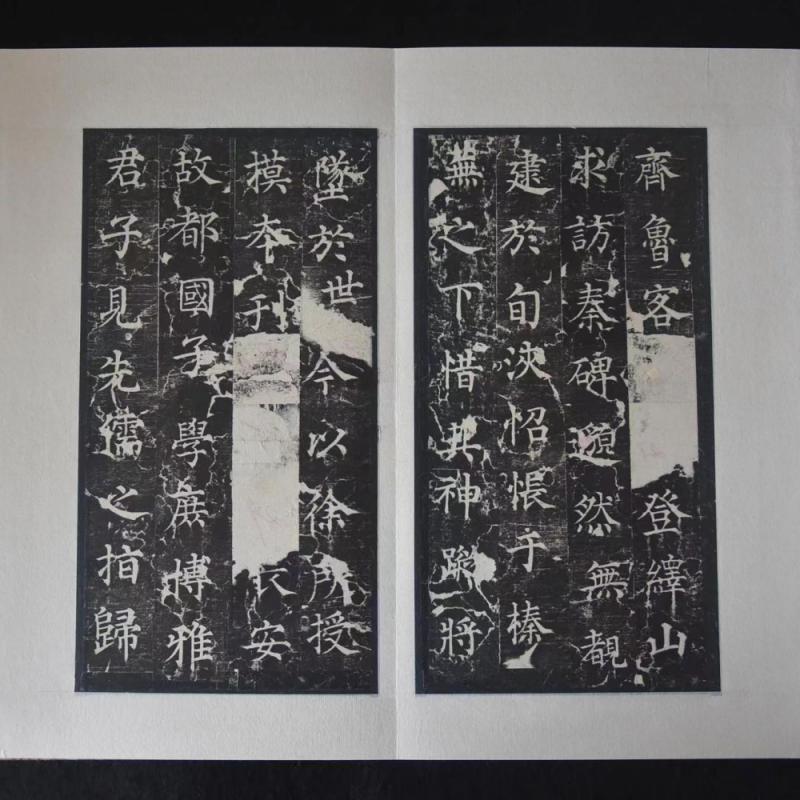 齊魯客登繹山
求訪秦碑邈然無覩
逮於旬浹怊悵于榛
蕪之下惜其神蹤將
墜於世今以徐所授
摸本刊安
故都國子學庶博雅
君子見先儒之指歸